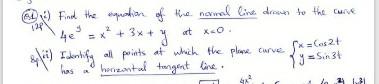 Q1) i) Find the equation of the normal line drawn to the curve
12p 4e^y = x² + 3x + y at x=0.
8p ii) Identify all points at which the plane curve {x=Cos2t
has a horizontal tangent line. y=Sin3t